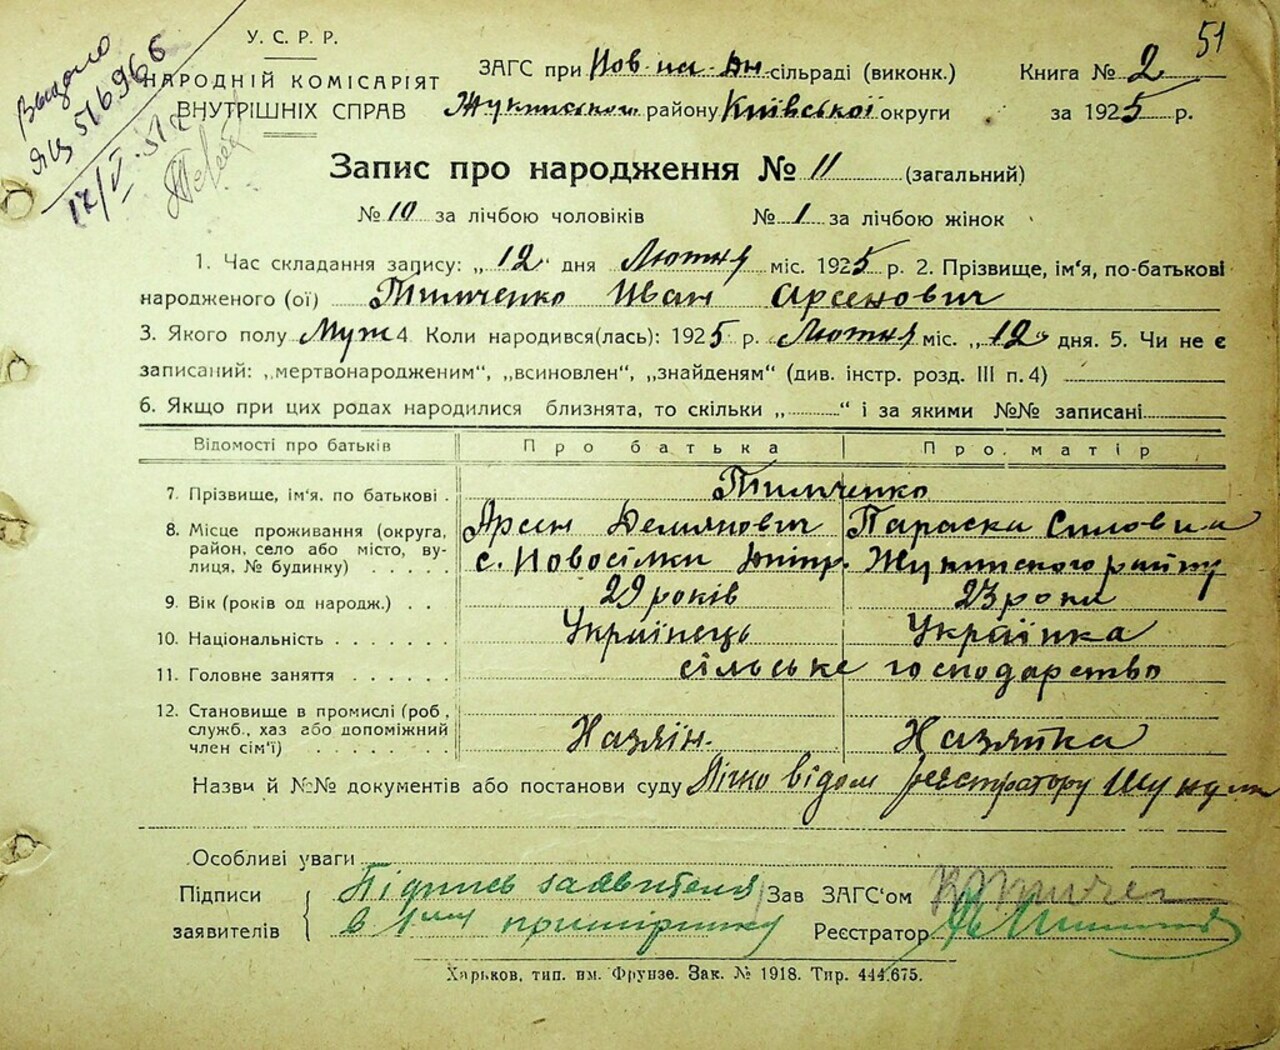 51
Выдано
ЯЦ 516966
17/V-51 г.
У.С.Р.Р.
НАРОДНІЙ КОМІСАРІЯТ
ВНУТРІШНІХ СПРАВ
ЗАГС при Нов-на-Дн. сільраді (виконк.) Книга № 2
Жукинськом району Київської округи за 1925 р.
Запис про народження № 11 (загальний)
№ 10 за лічбою чоловіків № 1 за лічбою жінок
1. Час складання запису: „12" дня Лютня міс. 1925 р. 2. Прізвище, ім'я, по-батькові
народженого (ої) Тимченко Иван Арсенович
3. Якого полу Муж 4. Коли народився(лась): 1925 р. Лютня міс. „12" дня. 5. Чи не є
записаний: „мертвонародженим", „всиновлен", „знайденям" (див. інстр. розд. III п. 4)
6. Якщо при цих родах народилися близнята, то скільки „ " і за якими №№ записані
Відомості про батьків Про батька Про матір
7. Прізвище, ім'я, по батькові Тимченко
Арсен Демянович Параска Силовна
8. Місце проживання (округа, район, село або місто, вулиця, № будинку) с. Новосілки Дніпр. Жукинского району
9. Вік (років од народж.) 29 років 23 роки
10. Національність Українець Українка
11. Головне заняття сільське господарство
12. Становище в промислі (роб., служб., хаз або допоміжний член сім'ї) Хазяїн. Хазяйка
Назви й №№ документів або постанови суду Лічно відом реєстратору
Особливі уваги
Підписи заявителів Підпись заявителя
в 1им примірнику
Зав ЗАГС'ом
Реєстратор
Харьков, тип. им. Фрунзе. Зак. № 1918. Тир. 444.675.